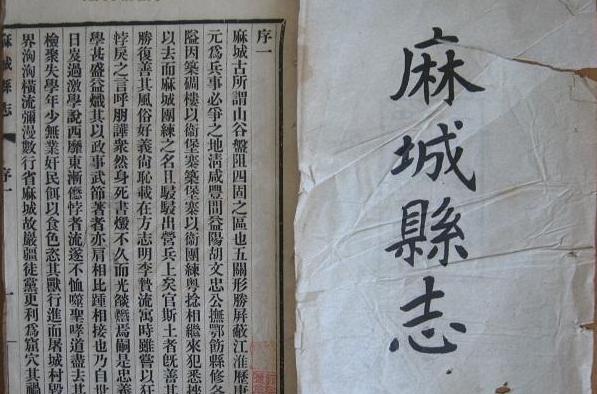 麻城縣志
序一
麻城古所謂山谷盤阻四固之區也五關形勝屏蔽江淮歷唐
元為兵事必爭之地淸咸豐間益陽胡文忠公撫鄂飭縣修各
隘因築碉樓以衞堡寨築堡寨以衞團練粵捻相繼來犯悉挫
以去而麻城團練之名且駸駸出營兵上矣官斯土者旣善其
勝復善其風俗好義尙恥載在方志明季贄流寓時雖嘗以狂
悖戾之言呼朋譁衆然身死書燬不久而光燄熸焉嗣是忠義
學甚盛益熾其以政事武節著者亦肩相比踵相接也乃自世
日岌過激學說西靡東漸悖者流遂不恤噬聖嘷道盡去其
檢聚失學年少無業奸民餌以食色恣其獸行進而屠城村毀
界洶洶橫流彌漫數行省麻城故嚴疆徒黨更利為窟穴其禍
麻城縣志 序一 一